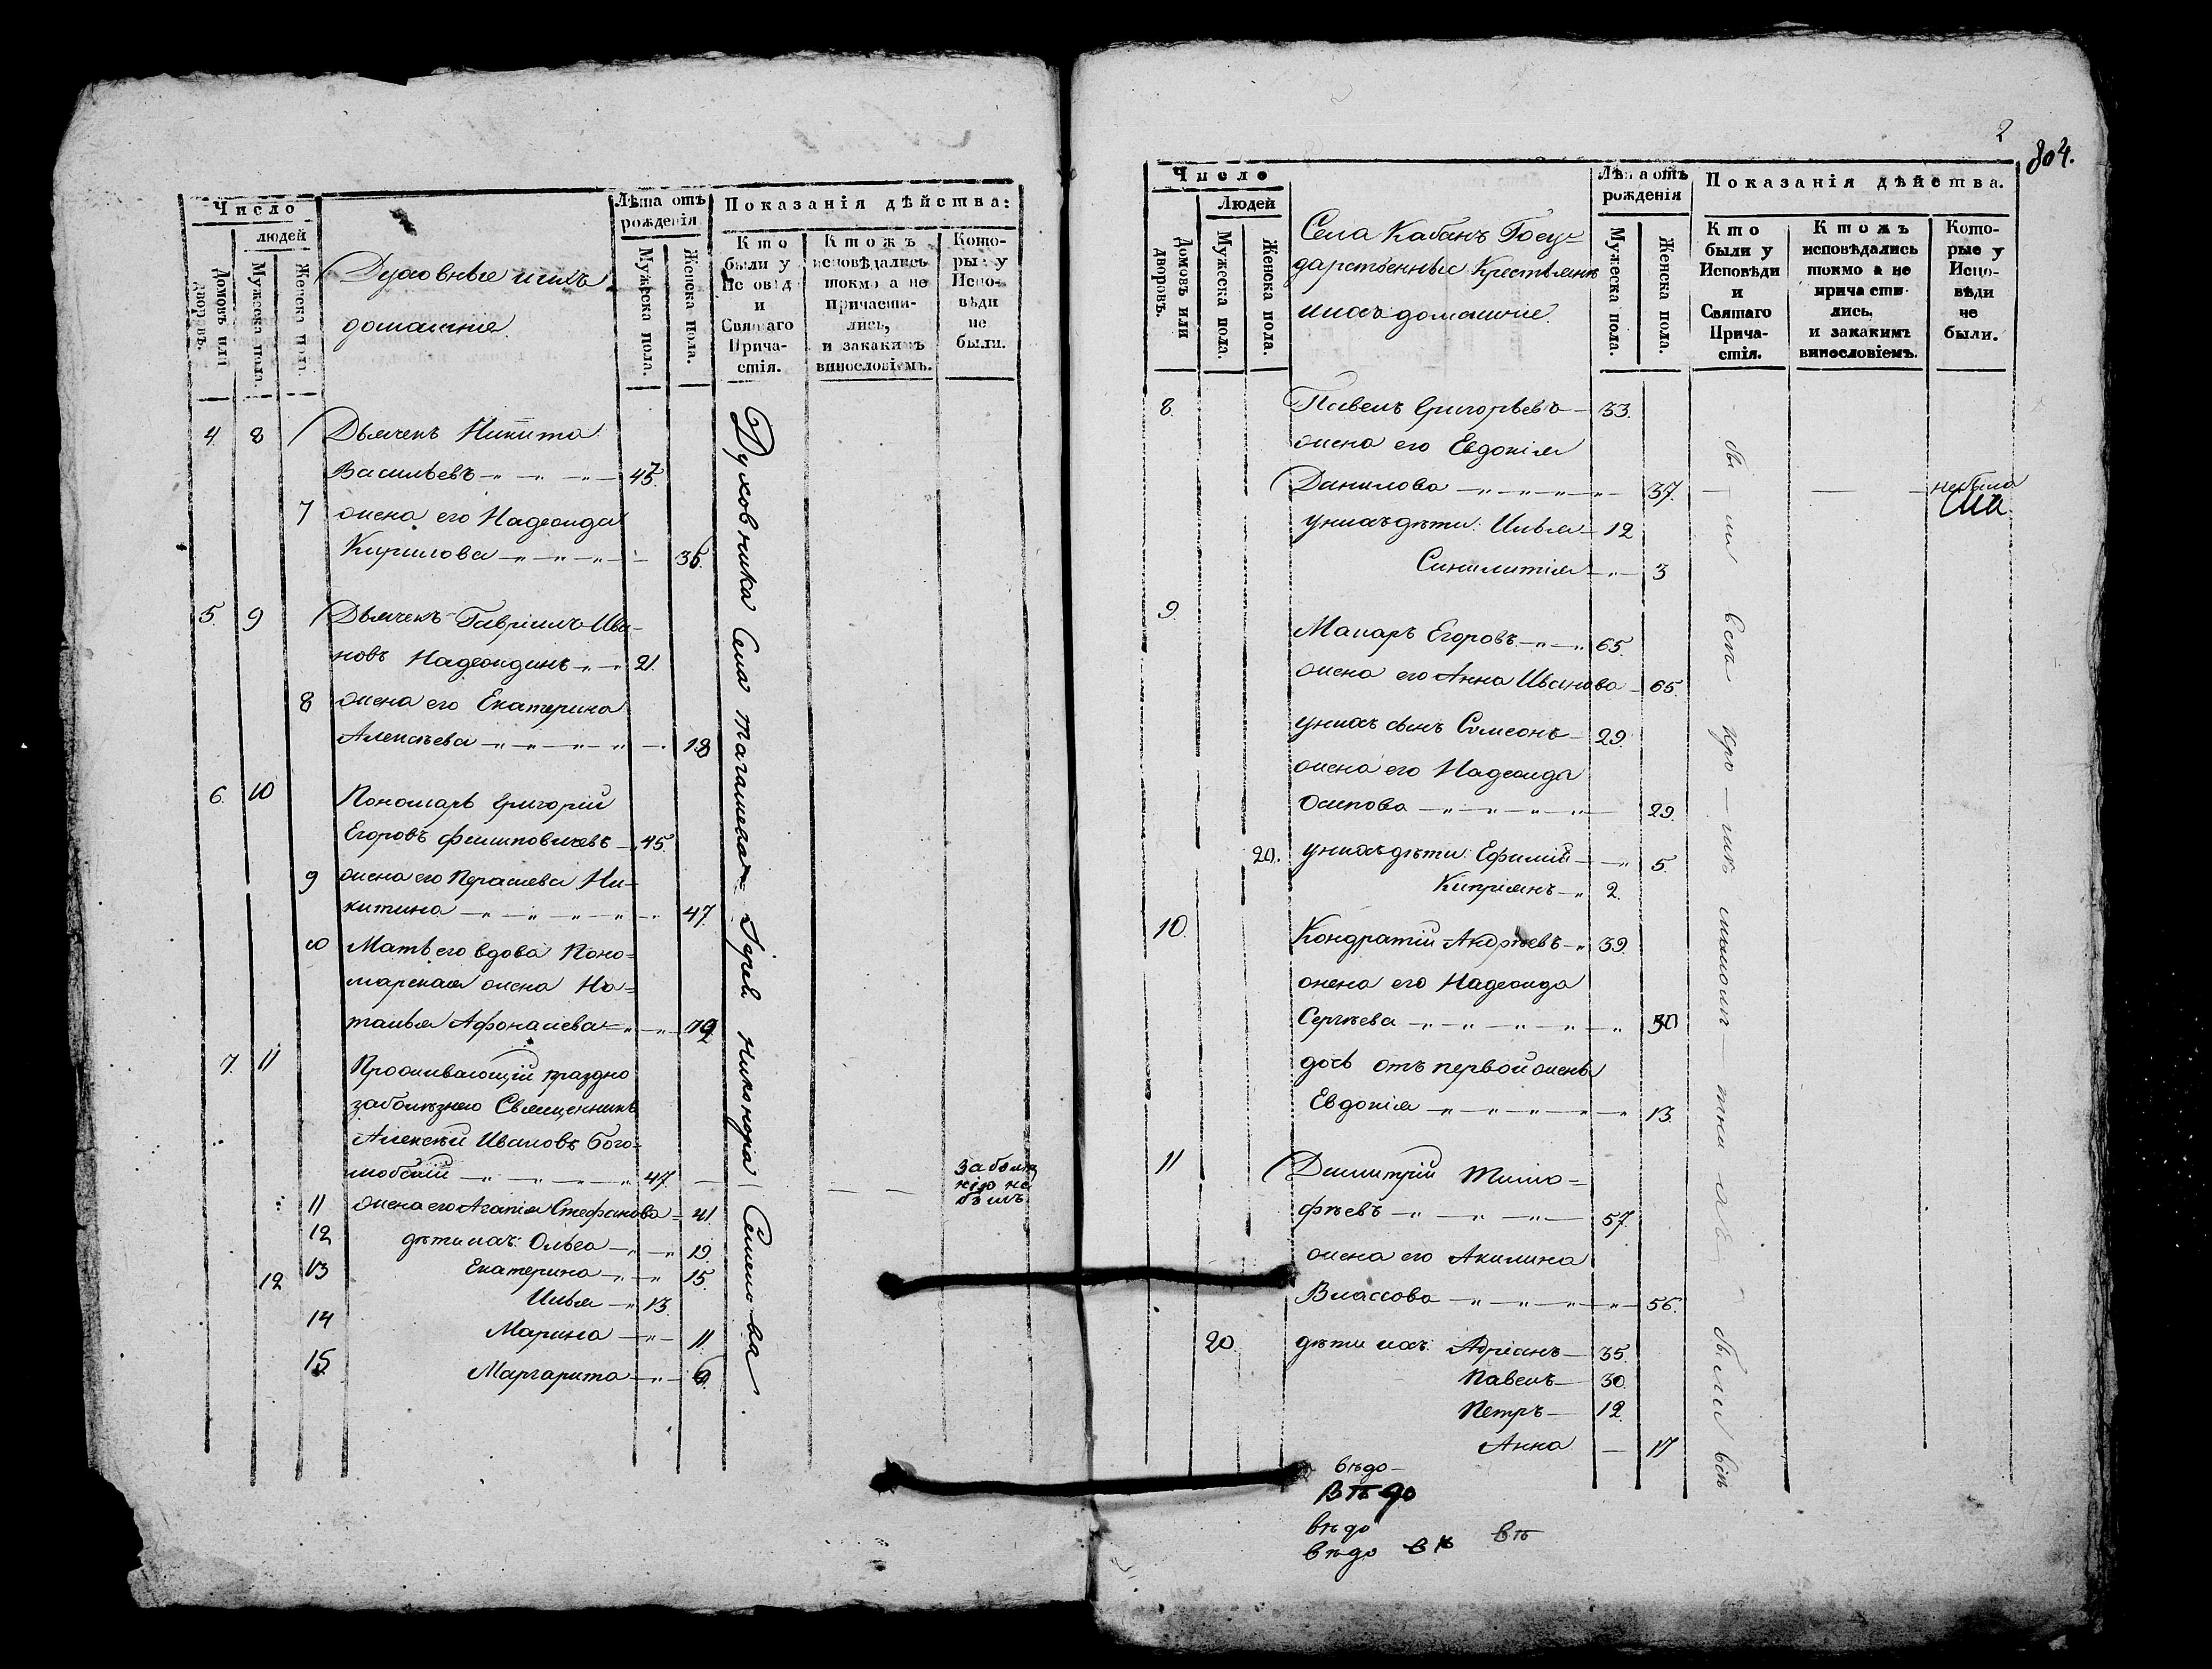 Число
людей
Домовъ или дворовъ.
Мужеска пола.
Женска пола.
Духовные и ихъ
домашніе.
Лѣта отъ
рожденія
Мужеска пола.
Женска пола.
Показанія дѣйства:
Кто
были у
Исповѣди
и
Святаго
Прича-
стія.
Ктожъ
исповѣдались
токмо а не
причасти-
лись,
и закакимъ
винословіемъ.
Кото-
рые у
Испо-
вѣди
не
были.
4. 8 Дьячекъ Никита
Васильевъ 45.
7 жена его Надежда
Кирилова 36.
5. 9 Дьячекъ Гавріилъ Ива-
новъ Надеждинъ 21.
8 жена его Екатерина
Алексѣева 18
6. 10 Пономарь Григорій
Егоровъ Филиповичевъ 45.
9 жена его Пераскева Ни-
китина 47.
10 Мать его вдова Поно-
марская жена На-
талья Афонасиева 72
7. 11 Проживающій праздно
заболѣзнею Священникъ
Алексѣй Ивановъ Бого-
любскій 47.
заболѣз
нію не
былъ.
11 жена его Агапія Стефанова 41.
12 дѣти ихъ: Ольга 19.
13 Екатерина 15.
12 Илья 13.
14 Марина 11.
15 Маргарита 6.
Духовника Села Іерей Никонора Семенова.
2
804.
Число
Людей
Домовъ или дворовъ.
Мужеска пола.
Женска пола.
Села Кабанъ Госу-
дарственные Крестьяне
и ихъ домашніе.
Лѣта отъ
рожденія
Мужеска пола.
Женска пола.
Показанія дѣйства.
Кто
были у
Исповѣди
и
Святаго
Прича-
стія.
Ктожъ
исповѣдались
токмо а не
причасти-
лись,
и закакимъ
винословіемъ.
Кото-
рые у
Испо-
вѣди
не
были.
8. Павелъ Григорьевъ 33.
жена его Евдокія
Данилова 37. небыла
у нихъ дѣти: Илья 12
Синклитія 3
9. Макаръ Егоровъ 65.
жена его Анна Иванова 65
у нихъ сынъ Симеонъ 29.
жена его Надежда
Осипова 29.
20. у нихъ дѣти: Ефимій 5.
Кипріянъ 2.
10. Кондратій Андрѣевъ 39.
жена его Надежда
Сергѣева 30
дочь отъ первой жены
Евдокія 13.
11 Димитрій Тимо-
фѣевъ 57.
жена его Акилина
Власова 56.
20. дѣти ихъ: Адріанъ 35.
Павелъ 30.
Петръ 12.
Анна 17
были всѣ были всѣ
вѣдо-
Вѣдо
вѣдо
вѣдо вѣ вѣ